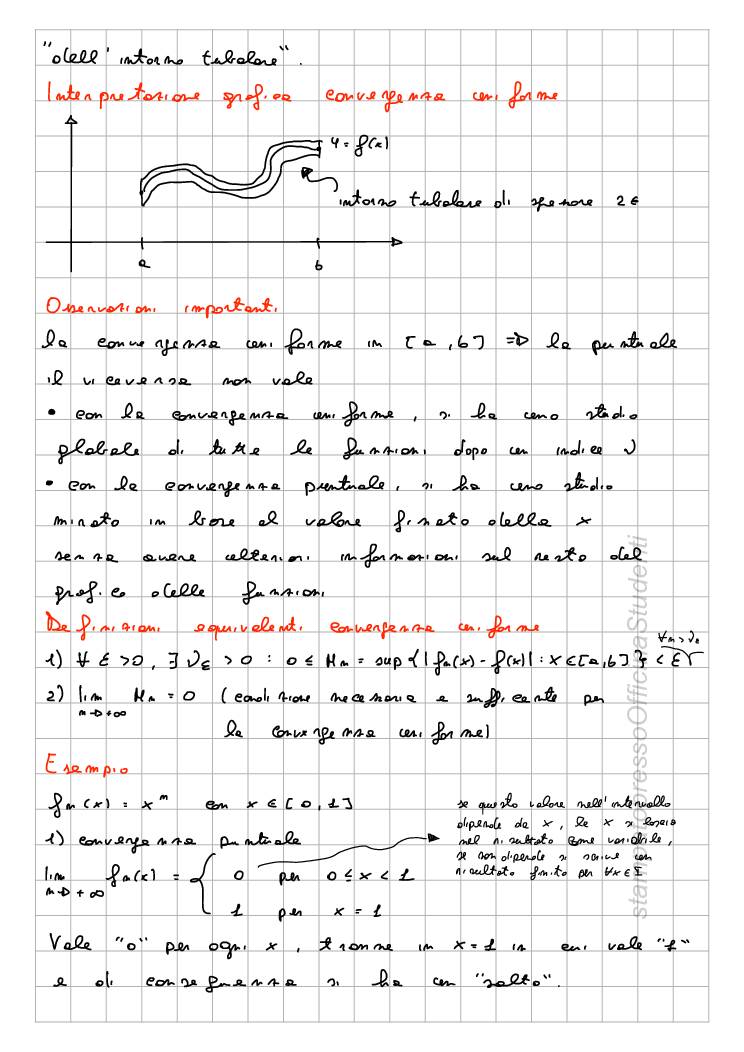 "dell'intorno tubolare".
Interpretazione grafica convergenza uniforme
y = f(x)
intorno tubolare di spessore 2ϵ
a b
Osservazioni importanti
la convergenza uniforme in [a,b] => la puntuale
il viceversa non vale
• con la convergenza uniforme, si ha uno studio
globale di tutte le funzioni dopo un indice ν
• con la convergenza puntuale, si ha uno studio
mirato in base al valore fissato della x
senza avere ulteriori informazioni sul resto del
grafico delle funzioni
Definizioni equivalenti convergenza uniforme
1) ∀ ε > 0, ∃ νε > 0 : 0 ≤ Mn = sup{|fn(x) - f(x)| : x ∈ [a,b]} < ε ∀n > νε
2) lim n→+∞ Mn = 0 (condizione necessaria e sufficiente per
la convergenza uniforme)
Esempio
fn(x) = x^n con x ∈ [0,1]
1) convergenza puntuale
lim n→+∞ fn(x) = { 0 per 0 ≤ x < 1
1 per x = 1
se questo valore nell'intervallo
dipende da x, la x si lascia
nel risultato come variabile,
se non dipende si scrive un
risultato finito per ∀x ∈ I
Vale "0" per ogni x, tranne in x = 1 in cui vale "1"
e di conseguenza si ha un "salto".
stampatopressoOfficinaStudenti